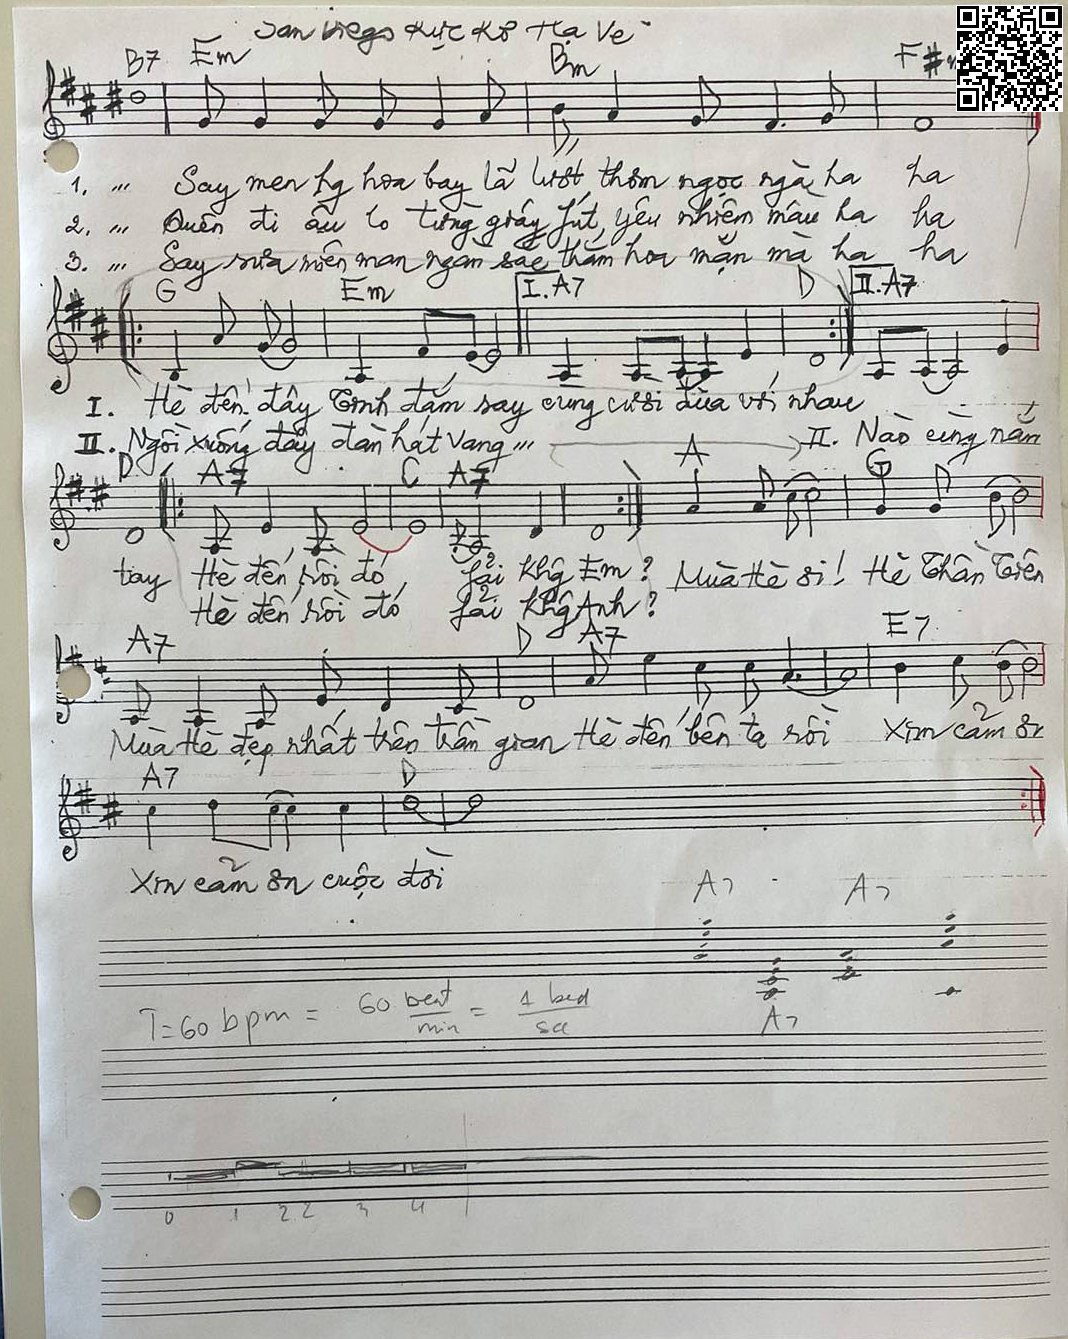 San Diego Rực Rỡ Hạ Về
B7 Em Bm F#
1. ... Say men hg hoa bay lả lướt, thơm ngọc ngà ha ha
2. ... Quên đi âu lo từng giây fút, yêu nhiệm mầu ha ha
3. ... Say sưa miên man ngàn sắc thắm hoa mặn mà ha ha
G Em I. A7 D II. A7
I. Hè đến đây Tình đắm say cùng cười đùa với nhau
II. Ngồi xuống đây đàn hát vang ... II. Nào cùng nắm
D A7 C A7 A G
tay Hè đến rồi đó fải khg Em? Mùa Hè ơi! Hè Thần Tiên
Hè đến rồi đó fải khg Anh?
A7 D A7 E7
Mùa Hè đẹp nhất trên trần gian Hè đến bên ta rồi Xin cảm ơn
A7 D
Xin cảm ơn cuộc đời
A7 A7
T=60 bpm = 60 beat/min = 1 bed/sec
A7
0 1 2.2 3 4